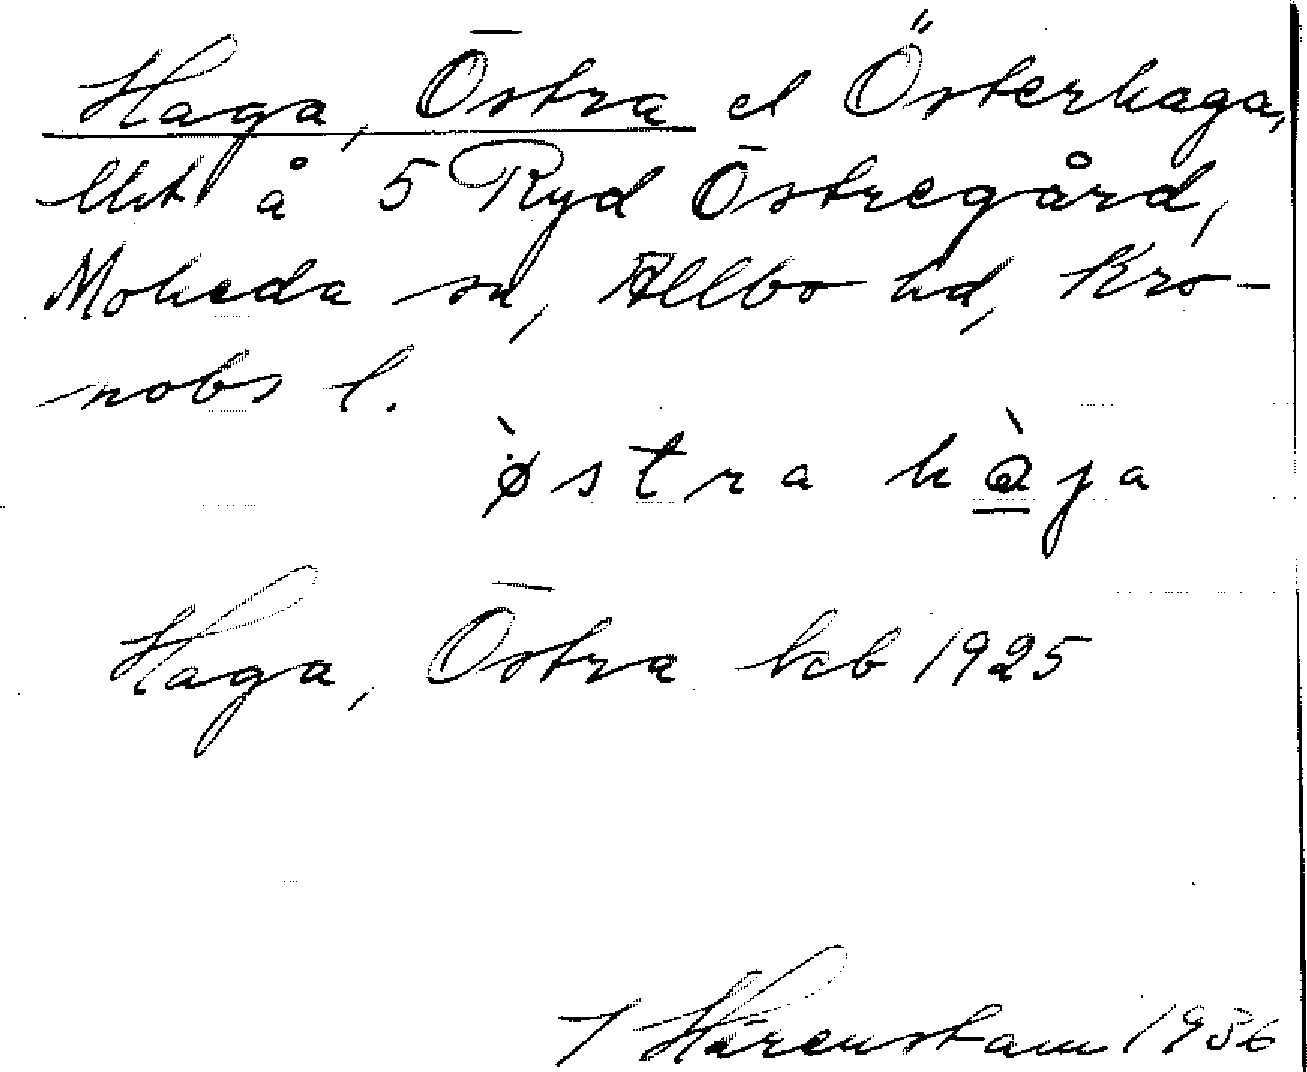 Haga, Östra el Österhaga,
lht å 5 Ryd Östregård,
Moheda sn, Allbo hd, Kro-
nobs l.
östra haga
Haga, Östra kcb 1925
Härenstam 1936